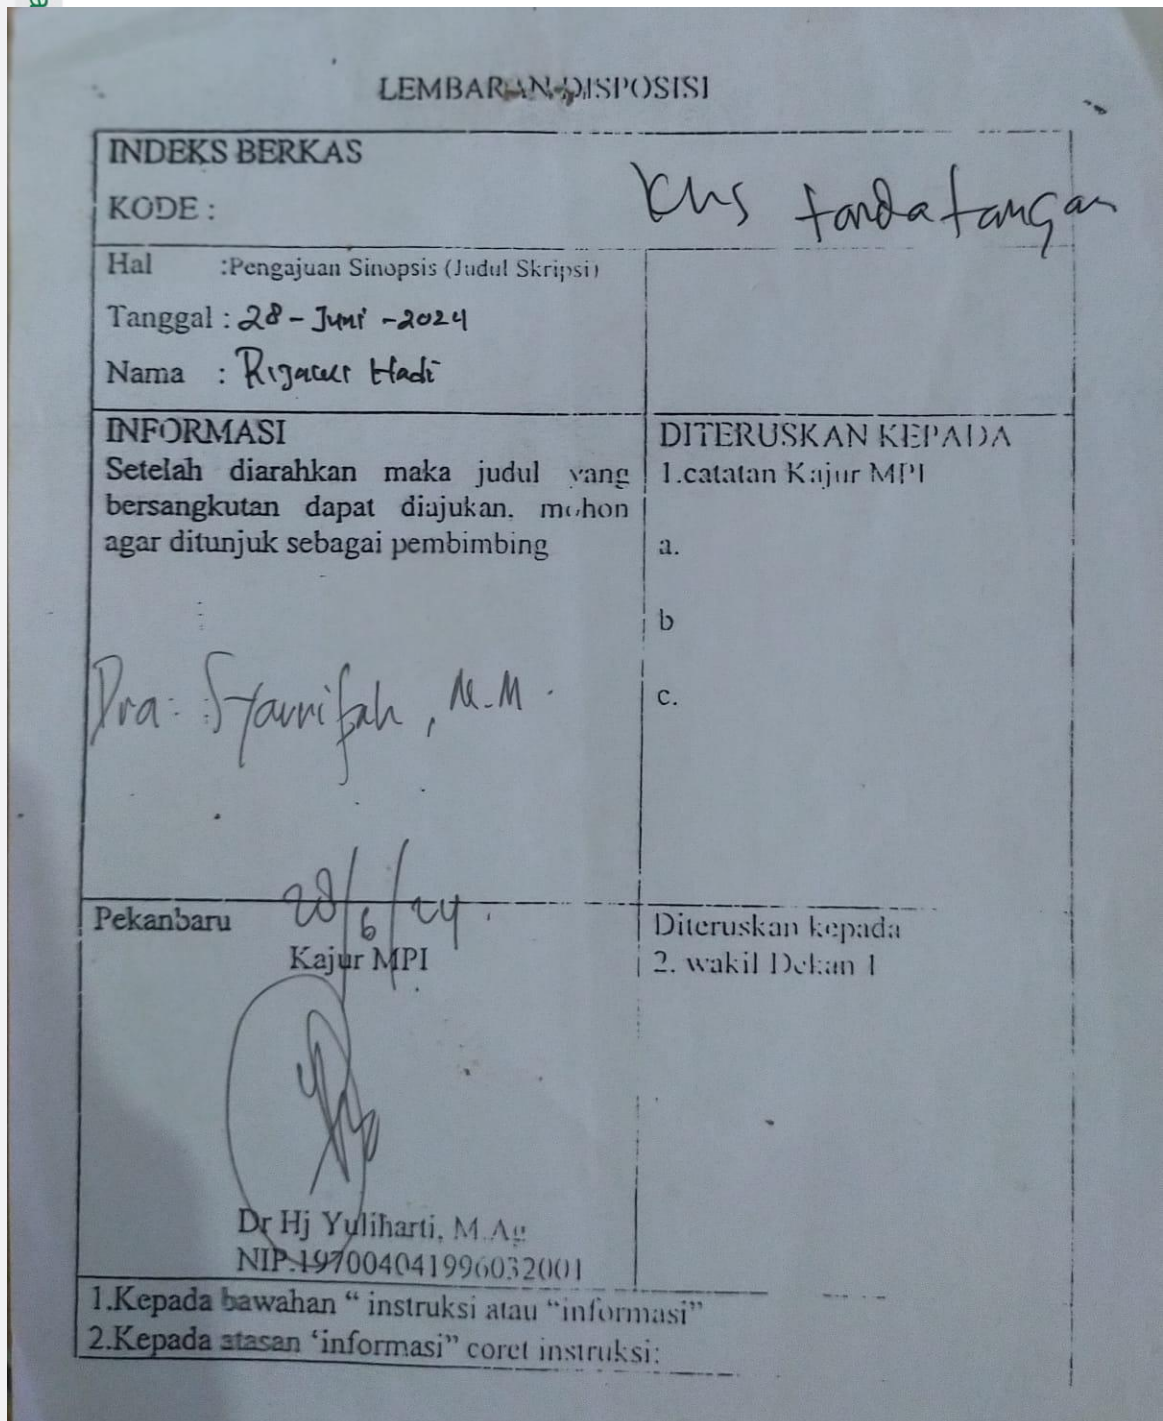 LEMBARAN DISPOSISI
INDEKS BERKAS
KODE :
khs tandatangan
Hal :Pengajuan Sinopsis (Judul Skripsi)
Tanggal : 28 - Juni - 2024
Nama : Hadi
INFORMASI
Setelah diarahkan maka judul yang
bersangkutan dapat diajukan. mohon
agar ditunjuk sebagai pembimbing
Dra. Syarifah, M.M.
DITERUSKAN KEPADA
1.catatan Kajur MPI
a.
b
c.
Pekanbaru 28/6/24
Kajur MPI
Dr Hj Yuliharti, M.Ag
NIP.197004041996032001
Diteruskan kepada
2. wakil Dekan 1
1.Kepada bawahan “ instruksi atau “informasi”
2.Kepada atasan ‘informasi” coret instruksi: